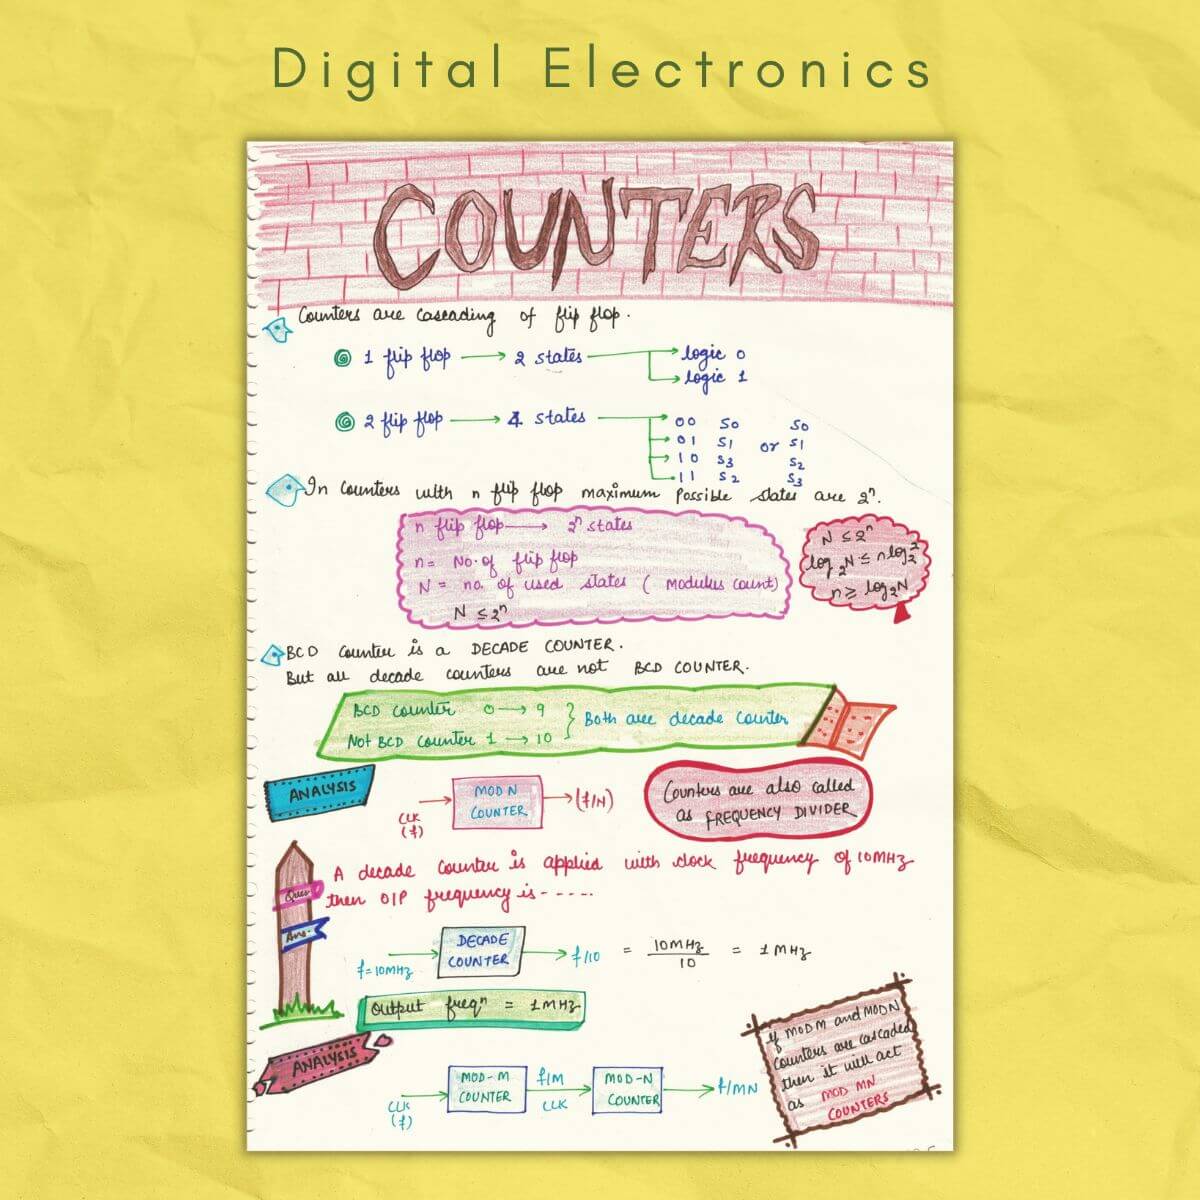 Digital Electronics
COUNTERS
Counters are cascading of flip flop.
1 flip flop → 2 states → logic 0
→ logic 1
2 flip flop → 4 states → 00 S0 S0
→ 01 S1 or S1
→ 10 S3 S2
→ 11 S2 S3
In counters with n flip flop maximum possible states are 2ⁿ.
n flip flop → 2ⁿ states
n = No. of flip flop
N = no. of used states ( Modulus count)
N ≤ 2ⁿ
N ≤ 2ⁿ
log₂N ≤ n log₂2
n ≥ log₂N
BCD counter is a DECADE COUNTER.
But all decade counters are not BCD COUNTER.
BCD counter 0 → 9 } Both are decade counter
Not BCD counter 1 → 10
ANALYSIS
CLK
(f)
MOD N
COUNTER
(f/N)
Counters are also called
as FREQUENCY DIVIDER
Ques
A decade counter is applied with clock frequency of 10MHz
then O/P frequency is - - - - -.
Ans.
f=10MHz
DECADE
COUNTER
f/10 = 10MHz/10 = 1MHz
Output freqⁿ = 1MHz
ANALYSIS
CLK
(f)
MOD-M
COUNTER
f/M
CLK
MOD-N
COUNTER
f/MN
If MOD M and MOD N
counters are cascaded
then it will act
as MOD MN
COUNTERS